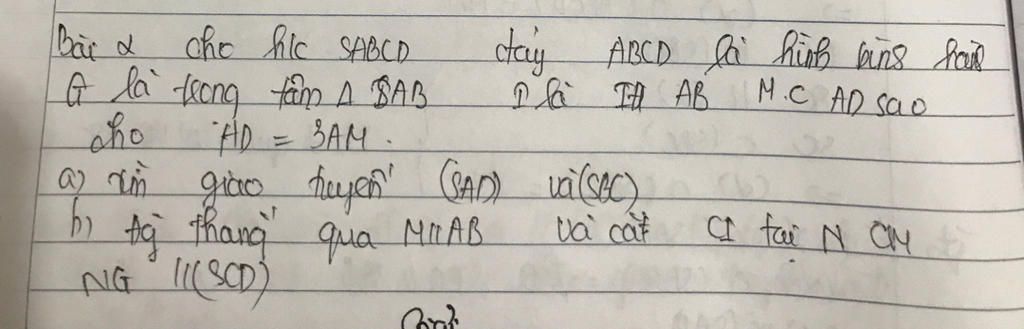 Bài 2 cho h/c SABCD đáy ABCD là hình bình hành
G là trọng tâm Δ SAB I là TĐ AB M ⊂ AD sao
cho AD = 3AM.
a) Tìm giao tuyến (SAD) và (SBC)
b) đg thẳng qua M // AB và cắt CI tại N CM
NG // (SCD)